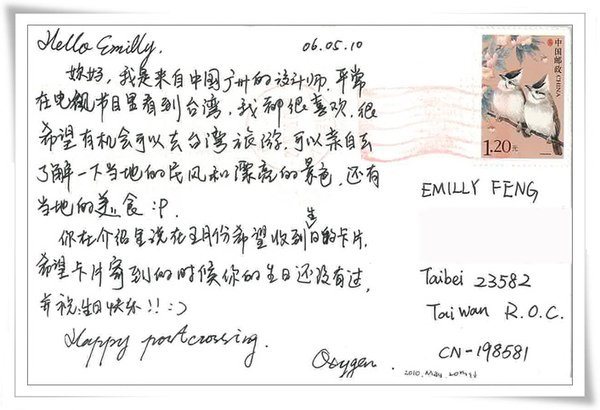 Hello Emilly. 06.05.10
妳好，我是来自中国广州的设计师，平常
在电视节目里看到台湾，我都很喜欢，很
希望有机会可以去台湾旅游，可以亲自去
了解一下当地的民风和漂亮的景色，还有
当地的美食 :P.
你在介绍里说在五月份希望收到生日的卡片，
希望卡片寄到的时候你的生日还没有过，
并祝：生日快乐!! :-)
Happy postcrossing.
Oxygen.
中国邮政
CHINA
1.20元
EMILLY FENG
Taibei 23582
Taiwan R.O.C.
CN-198581
2010. May